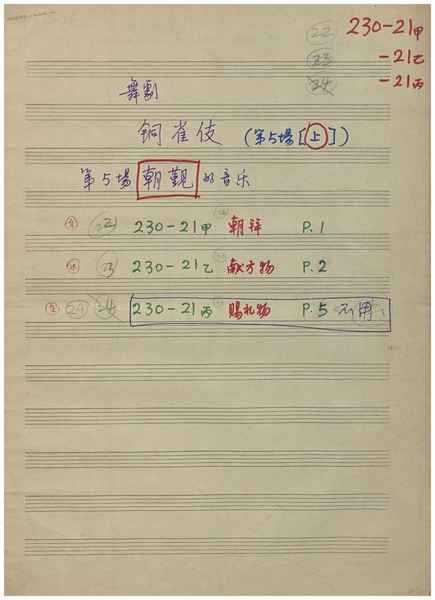 230-21甲
-21乙
-21丙
舞劇
铜雀伎 (第5場[上])
第5場 朝觐 的音乐
230-21甲 朝拜 P.1
230-21乙 献方物 P.2
230-21丙 赐礼物 P.5 不用